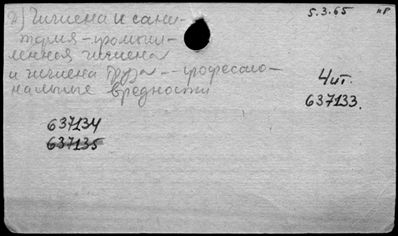 2) Гигиена и сани-
тария - промыш-
ленная гигиена
и гигиена труда - професио-
нальные вредности
5.3.65
4 ит.
637133.
637134
637135